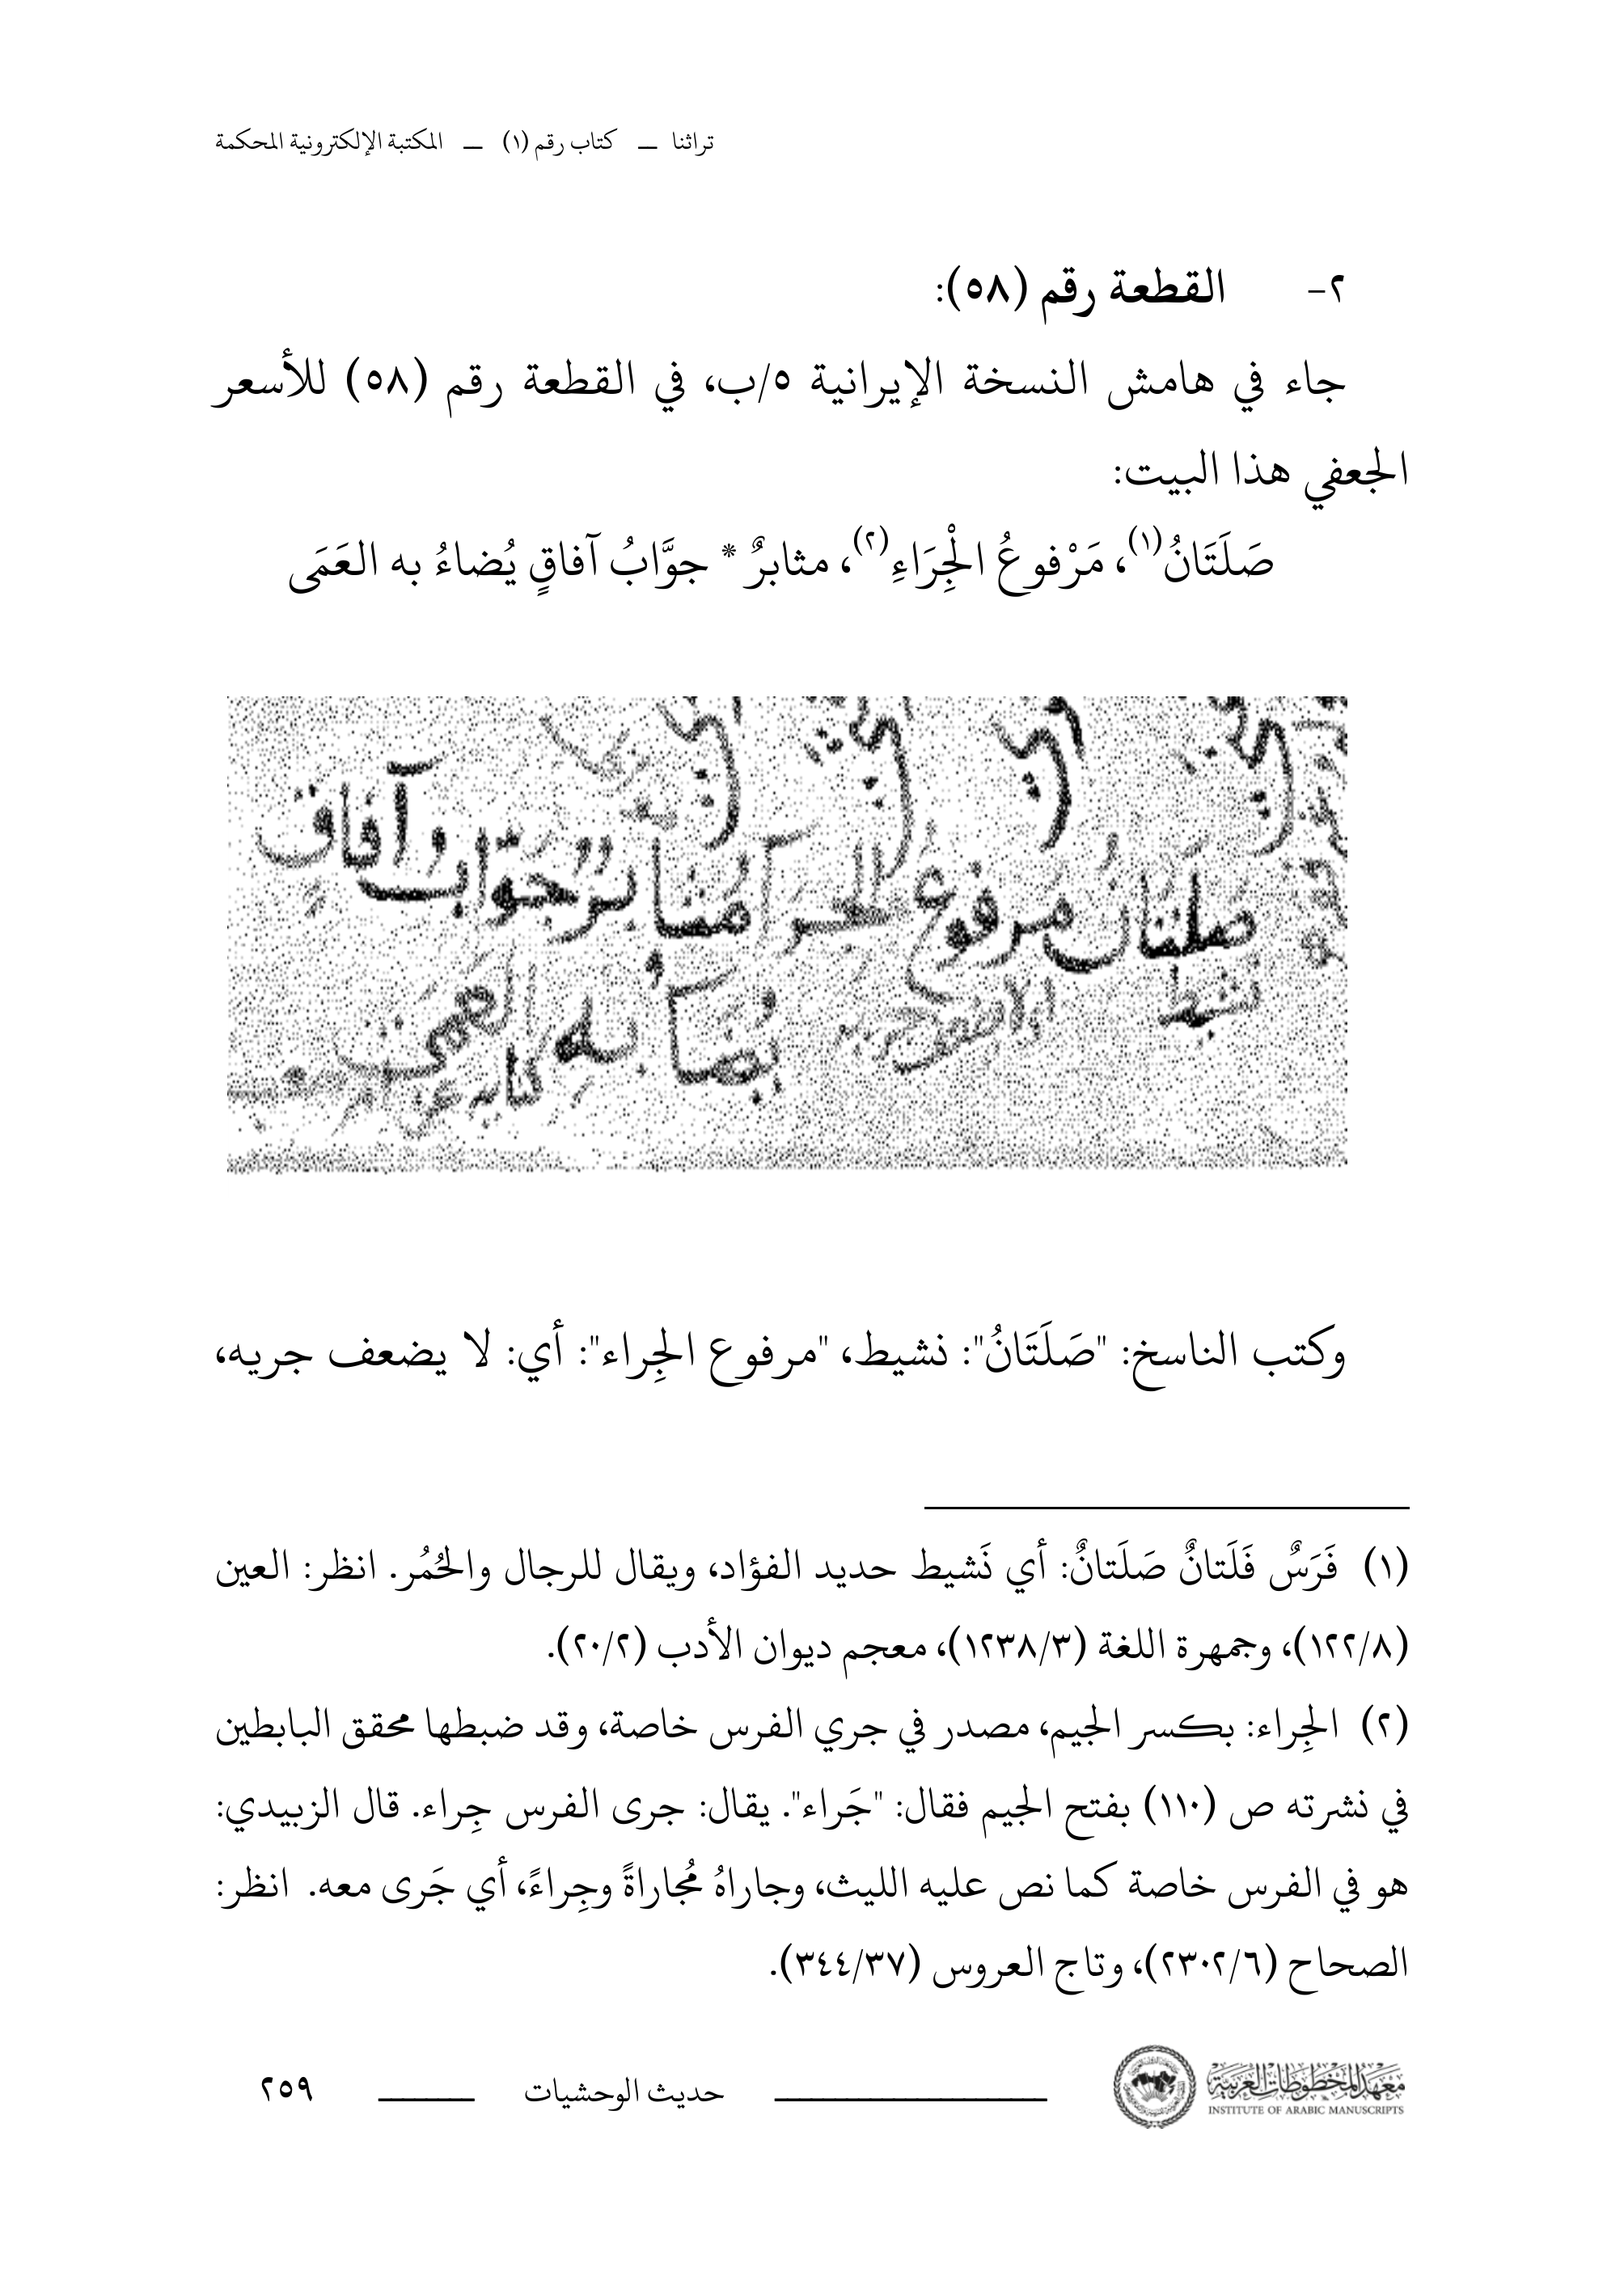 تراثنا — كتاب رقم (١) — المكتبة الإلكترونية المحكمة
٢- القطعة رقم (٥٨):
جاء في هامش النسخة الإيرانية ٥/ب، في القطعة رقم (٥٨) للأسعر
الجعفي هذا البيت:
صَلَتَانُ(١)، مَرْفوعُ الْجِرَاءِ(٢)، مثابرٌ * جوَّابُ آفاقٍ يُضاءُ به العَمَى
صلتان مرفوع الجرآ مثابر جوّاب آفاق
نشيط
اي لا يضعف جريه
يضآ به العمى
كناية عن
وكتب الناسخ: "صَلَتَانُ": نشيط، "مرفوع الجِراء": أي: لا يضعف جريه،
(١) فَرَسٌ فَلَتانٌ صَلَتانٌ: أي نَشيط حديد الفؤاد، ويقال للرجال والحُمُر. انظر: العين
(١٢٢/٨)، وجمهرة اللغة (١٢٣٨/٣)، معجم ديوان الأدب (٢٠/٢).
(٢) الجِراء: بكسر الجيم، مصدر في جري الفرس خاصة، وقد ضبطها محقق البابطين
في نشرته ص (١١٠) بفتح الجيم فقال: "جَراء". يقال: جرى الفرس جِراء. قال الزبيدي:
هو في الفرس خاصة كما نص عليه الليث، وجاراهُ مُجاراةً وجِراءً، أي جَرى معه. انظر:
الصحاح (٢٣٠٢/٦)، وتاج العروس (٣٤٤/٣٧).
معهد المخطوطات العربية
INSTITUTE OF ARABIC MANUSCRIPTS
حديث الوحشيات
٢٥٩